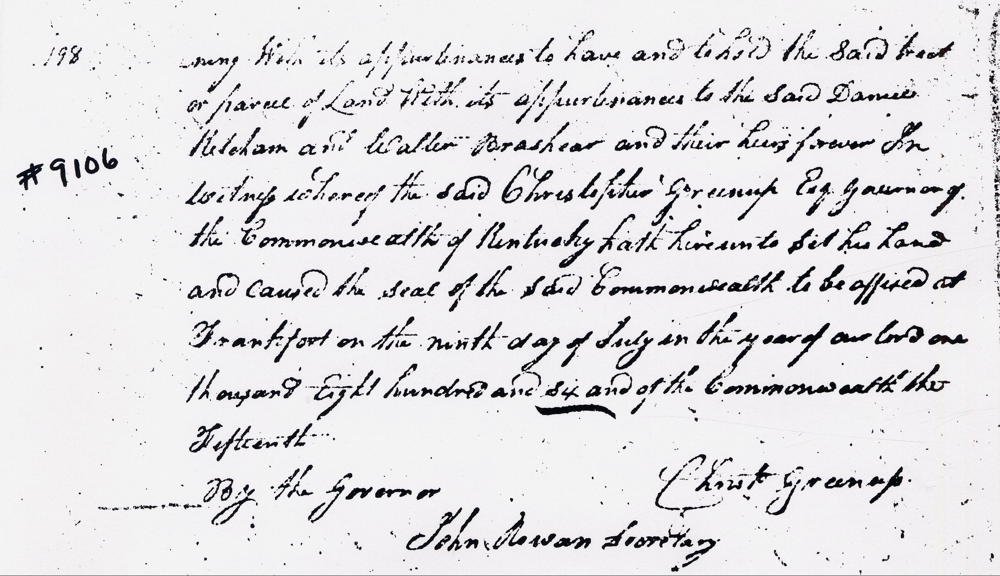 198
ning With its appurtinances to have and to hold the Said tract
or parcel of Land With its appurtinances to the said Daniel
Ketcham and Walter Brashear and their heirs forever In
witness whereof the said Christopher Greenup Esq Governor of
the Commonwealth of Kentucky hath hereunto Set his hand
and caused the seal of the said Commonwealth to be affixed at
Frankfort on the ninth day of July in the year of our lord one
thousand Eight hundred and six and of the Commonwealth the
Fifteenth
By the Governor
Christ Greenup.
John Rowan Secretary
#9106